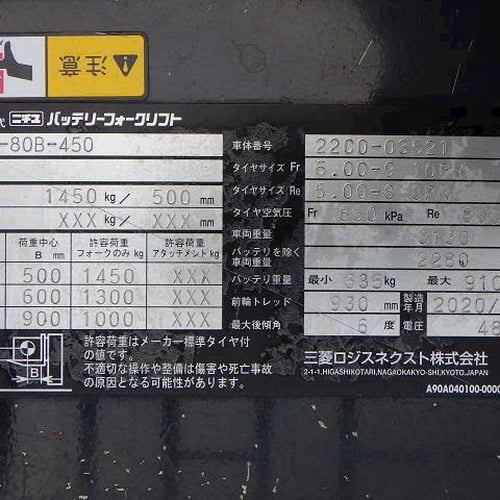 注意
代 ニチユ バッテリーフォークリフト
-80B-450
1450 kg/ 500 mm
XXX kg/ XXX mm
荷重中心 B mm 許容荷重 フォークのみ kg 許容荷重 アタッチメント kg
500 1450 XXX
600 1300 XXX
900 1000 XXX
B
許容荷重はメーカー標準タイヤ付
の値です。
不適切な操作や整備は傷害や死亡事故
の原因となる可能性があります。
車体番号 22C0-03521
タイヤサイズ Fr 6.00-9
タイヤサイズ Re 5.00-8
タイヤ空気圧 Fr 850 kPa Re
車両重量 3130
バッテリを除く 車両重量 2280
バッテリ重量 最小 635 kg 最大 910
前輪トレッド 930 mm 製造年月 2020
最大後傾角 6 度 電圧 48
三菱ロジスネクスト株式会社
2-1-1,HIGASHIKOTARI,NAGAOKAKYO-SHI,KYOTO,JAPAN
A90A040100-0000